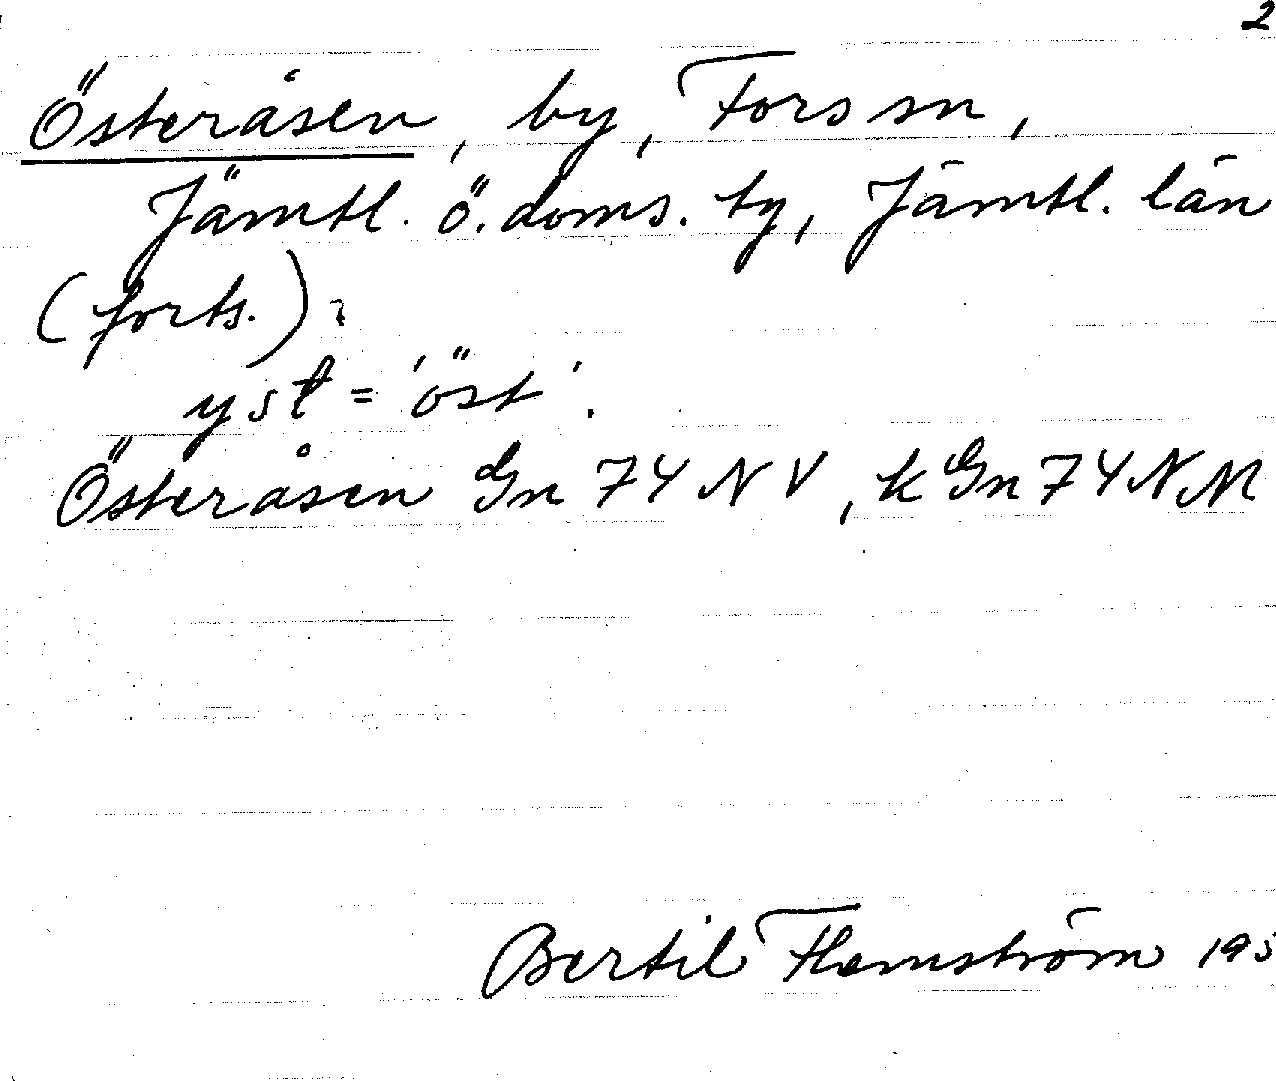 2
Österåsen, by, Fors sn,
Jämtl. ö. doms. tg, Jämtl. län
(forts.)
yst = 'öst'.
Österåsen Gn 74 NV, k Gn 74 NM
Bertil Flemström 195